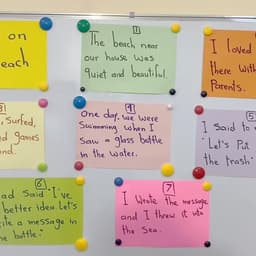 on
each
1
The beach near
our house was
quiet and beautiful.
I loved
there with
Parents.
3
, surfed,
games
4
One day, we were
Swimming when I
Saw a glass bottle
in the water.
5
I said to
"Let's Put
the trash
6
ad Said "I've
better idea. Let's
a message in
bottle."
7
I wrote the message
and I threw it into
the Sea.